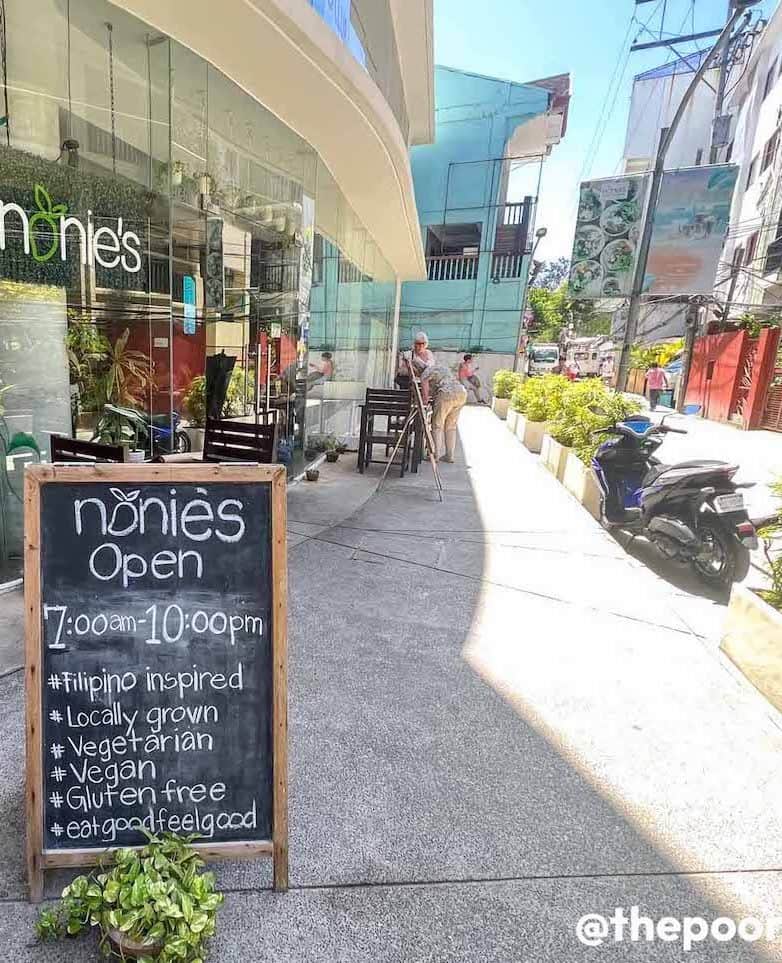 nonie's
nonies
Open
7:00am-10:00pm
#Filipino inspired
#Locally grown
#Vegetarian
#Vegan
#Gluten free
#eatgoodfeelgood
@thepoor